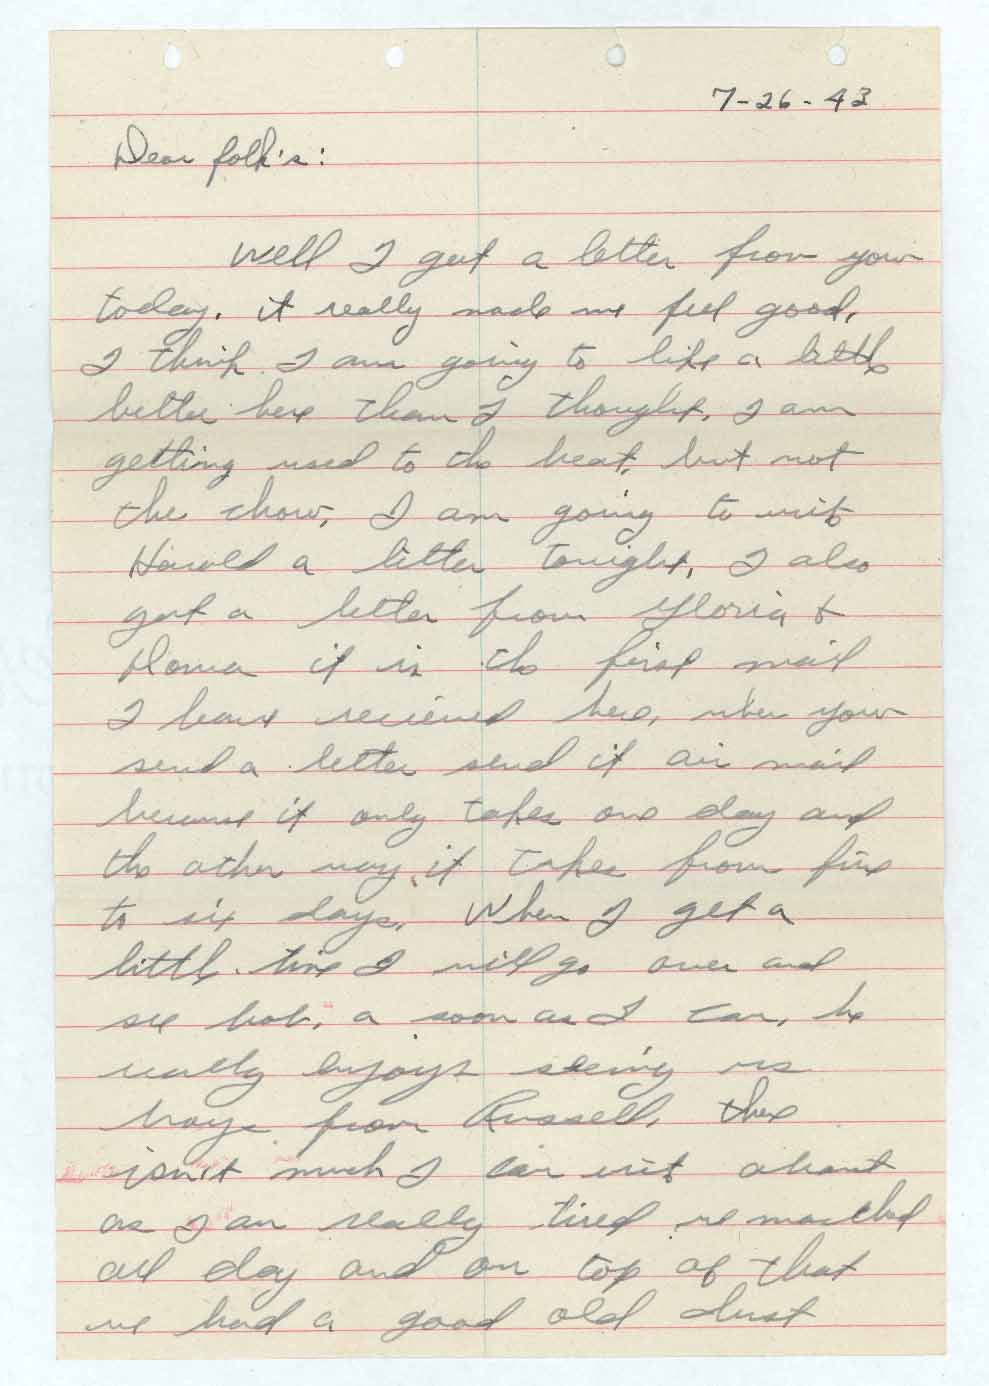 7-26-43
Dear folk's:
Well I got a letter from you
today. it really made me feel good,
I think I am going to like a little
better here than I thought, I am
getting used to the heat, but not
the chow, I am going to writ
Harold a letter tonight, I also
got a letter from Gloria &
it is the first mail
I have recieved here, when you
send a letter send it air mail
because it only takes one day and
the other way it takes from five
to six days. When I get a
little time I will go over and
see bob, a soon as I can, he
really enjoys seeing us
boys from Russell, there
isn't much I can writ about
as I am really tired we marched
all day and on top of that
we had a good old dust